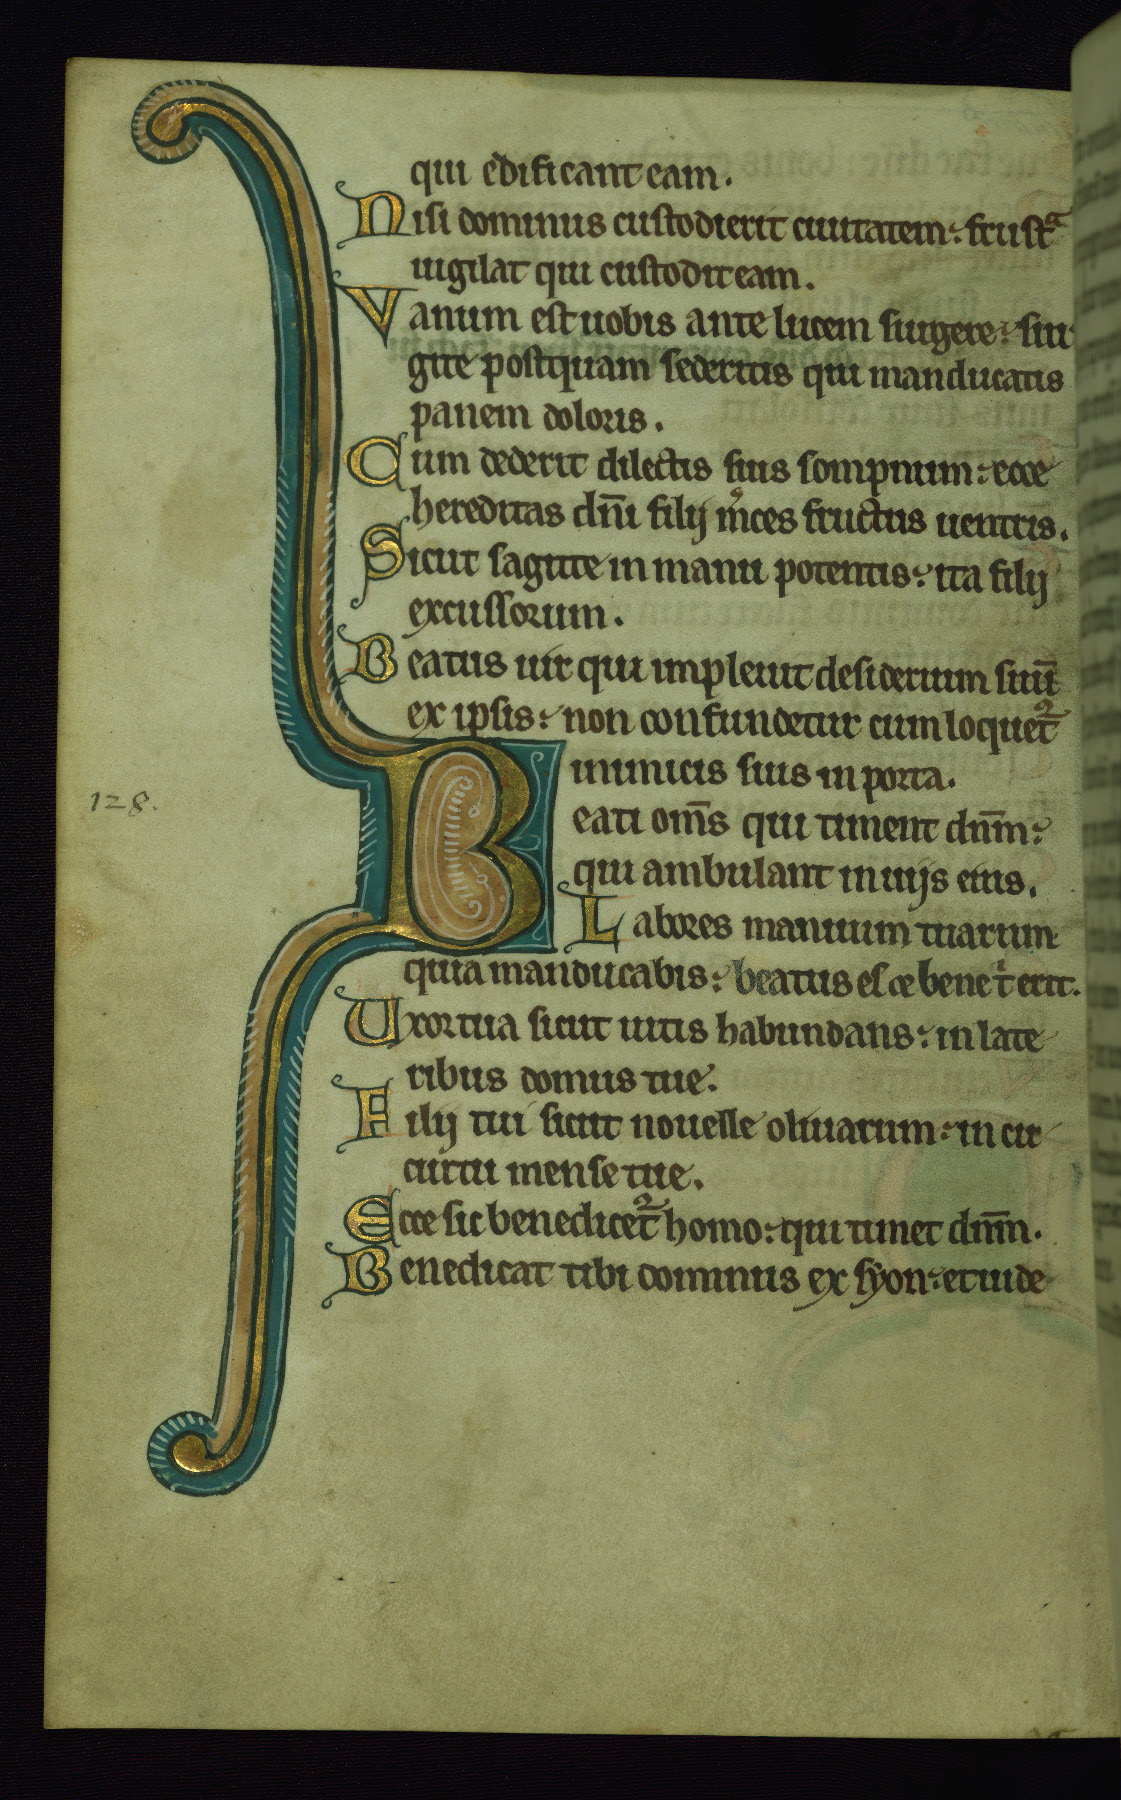 qui edificant eam.
Nisi dominus custodierit ciuitatem: frustͣ
uigilat qui custodit eam.
Vanum est uobis ante lucem surgere: sur
gite postquam sederitis qui manducatis
panem doloris.
Cum dederit dilectis suis sompnum: ecce
hereditas dn̄i filij m̉ces fructus uentris.
Sicut sagitte in manu potentis: ita filij
excussorum.
Beatus uir qui impleuit desiderium suū
ex ipsis: non confundetur cum loquet᷑
inimicis suis in porta.
128.
Beati om̄s qui timent dn̄m:
qui ambulant in uijs eius.
Labores manuum tuarum
quia manducabis: beatus es et bene t̉ erit.
Uxor tua sicut uitis habundans: in late
ribus domus tue.
Filij tui sicut nouelle oliuarum: in cir
cuitu mense tue.
Ecce sic benedicet᷑ homo: qui timet dn̄m.
Benedicat tibi dominus ex syon: et uide